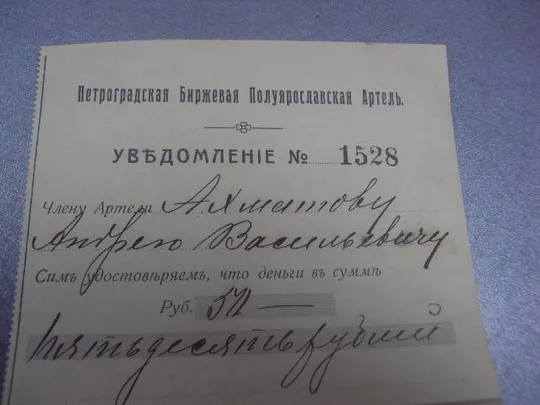 Петроградская Биржевая Полуярославская Артель.
УВѢДОМЛЕНІЕ № 1528
Члену Артели Ахматову
Андрею Васильевичу
Симъ удостовѣряемъ, что деньги въ суммѣ
Руб. 50 —
Пятьдесять рублей